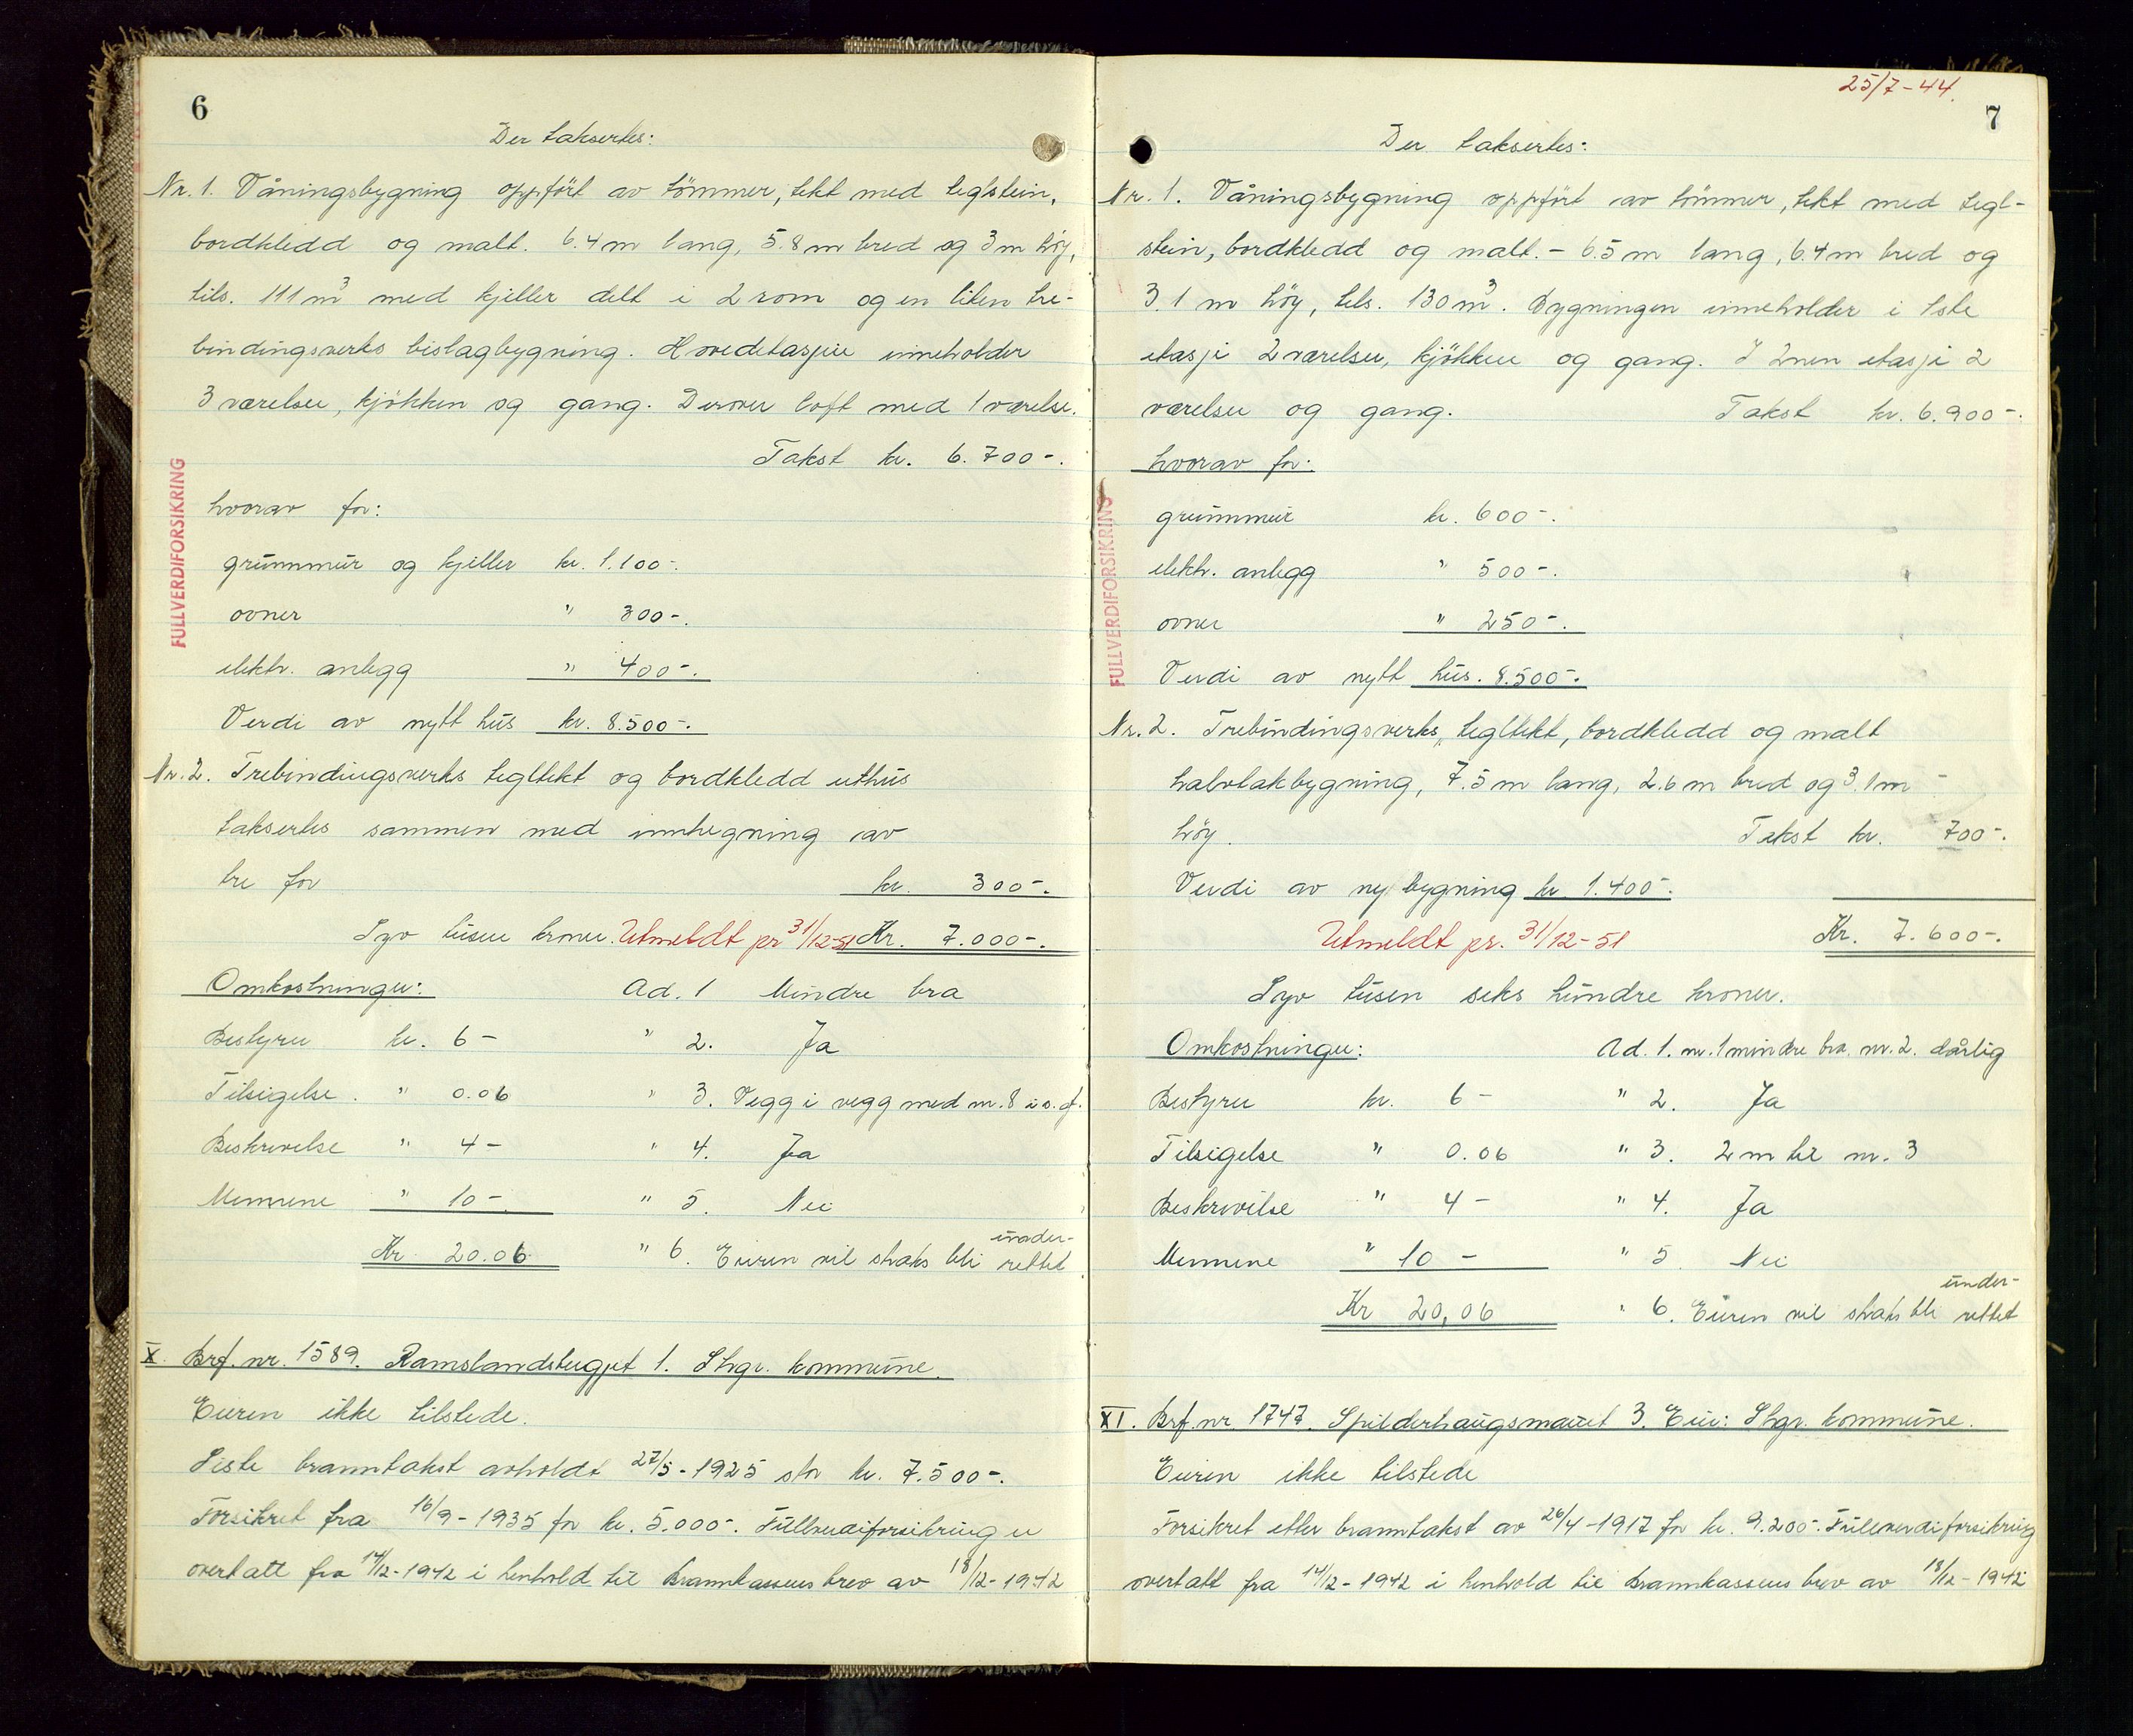 6
Der taksertes:
Nr. 1. Våningsbygning oppført av tömmer, tekt med teglstein,
bordkledd og malt. 6.4 m lang, 5.8 m bred og 3 m höy,
tils. 111 m³ med kjeller delt i 2 rom og en liten tre-
bindingsverks bislagbygning. Hovedetasjen inneholder
3 værelser, kjökken og gang. Derover loft med 1 værelse.
Takst kr. 6.700-.
hvorav for:
grunnmur og kjeller kr. 1.100-.
ovner " 300-.
elektr. anlegg " 400-.
Verdi av nytt hus kr. 8.500-.
Nr. 2. Trebindingsverks tegltekt og bordkledd uthus
taksertes sammen med innhegning av
tre for kr. 300-.
Syv tusen kroner. Utmeldt pr 31/12-51 Kr. 7.000-.
Omkostninger: Ad. 1 Mindre bra
Bestyrer kr. 6- " 2. Ja
Tilsigelse. " 0.06 " 3. Vegg i vegg med nr. 8 i s. g.
Beskrivelse " 4- " 4. Ja
Mennene " 10-. " 5. Nei
Kr 20.06 " 6. Eieren vil straks bli under-
rettet
X. Brf. nr. 1589. Ramslandstugjet 1. Shgr. kommune.
Eieren ikke tilstede.
Siste branntakst avholdt 27/5-1925 stor kr. 7.500-.
Forsikret fra 16/9-1935 for kr. 5.000-. Fullverdiforsikring er
overtatt fra 14/12-1942 i henhold til Brannkassens brev av 18/12-1942
FULLVERDIFORSIKRING
25/7-44.
7
Der taksertes:
Nr. 1. Våningsbygning oppført av tömmer, tekt med tegl-
stein, bordkledd og malt. - 6.5 m lang, 6.4 m bred og
3.1 m höy, tils. 130 m³. Bygningen inneholder i 1ste
etasje 2 værelser, kjökken og gang. I 2nen etasje 2
værelser og gang. Takst kr. 6.900-.
hvorav for:
grunnmur kr. 600-.
elektr. anlegg " 500-.
ovner " 250-.
Verdi av nytt hus. 8.500-.
Nr. 2. Trebindingsverks, tegltekt, bordkledd og malt
halvtakbygning, 7.5 m lang, 2.6 m bred og 3.1 m
höy. Takst kr. 700-.
Verdi av ny bygning kr 1.400-.
Utmeldt pr. 31/12-51 Kr. 7.600-.
Syv tusen seks hundre kroner.
Omkostninger: Ad. 1. nr. 1 mindre bra. nr. 2. dårlig
Bestyrer kr. 6- " 2. Ja
Tilsigelse " 0.06 " 3. 2 m til nr. 3
Beskrivelse " 4- " 4. Ja
Mennene " 10- " 5 Nei
Kr 20,06 " 6. Eieren vil straks bli under-
rettet
XI. Brf. nr. 1747. Spilderhaugsmauet 3. Eier: Shgr. kommune.
Eieren ikke tilstede
Forsikret etter branntakst av 26/4-1917 for kr. 9.200-. Fullverdiforsikring
overtatt fra 14/12-1942 i henhold til Brannkassens brev av 18/12-1942
FULLVERDIFORSIKRING